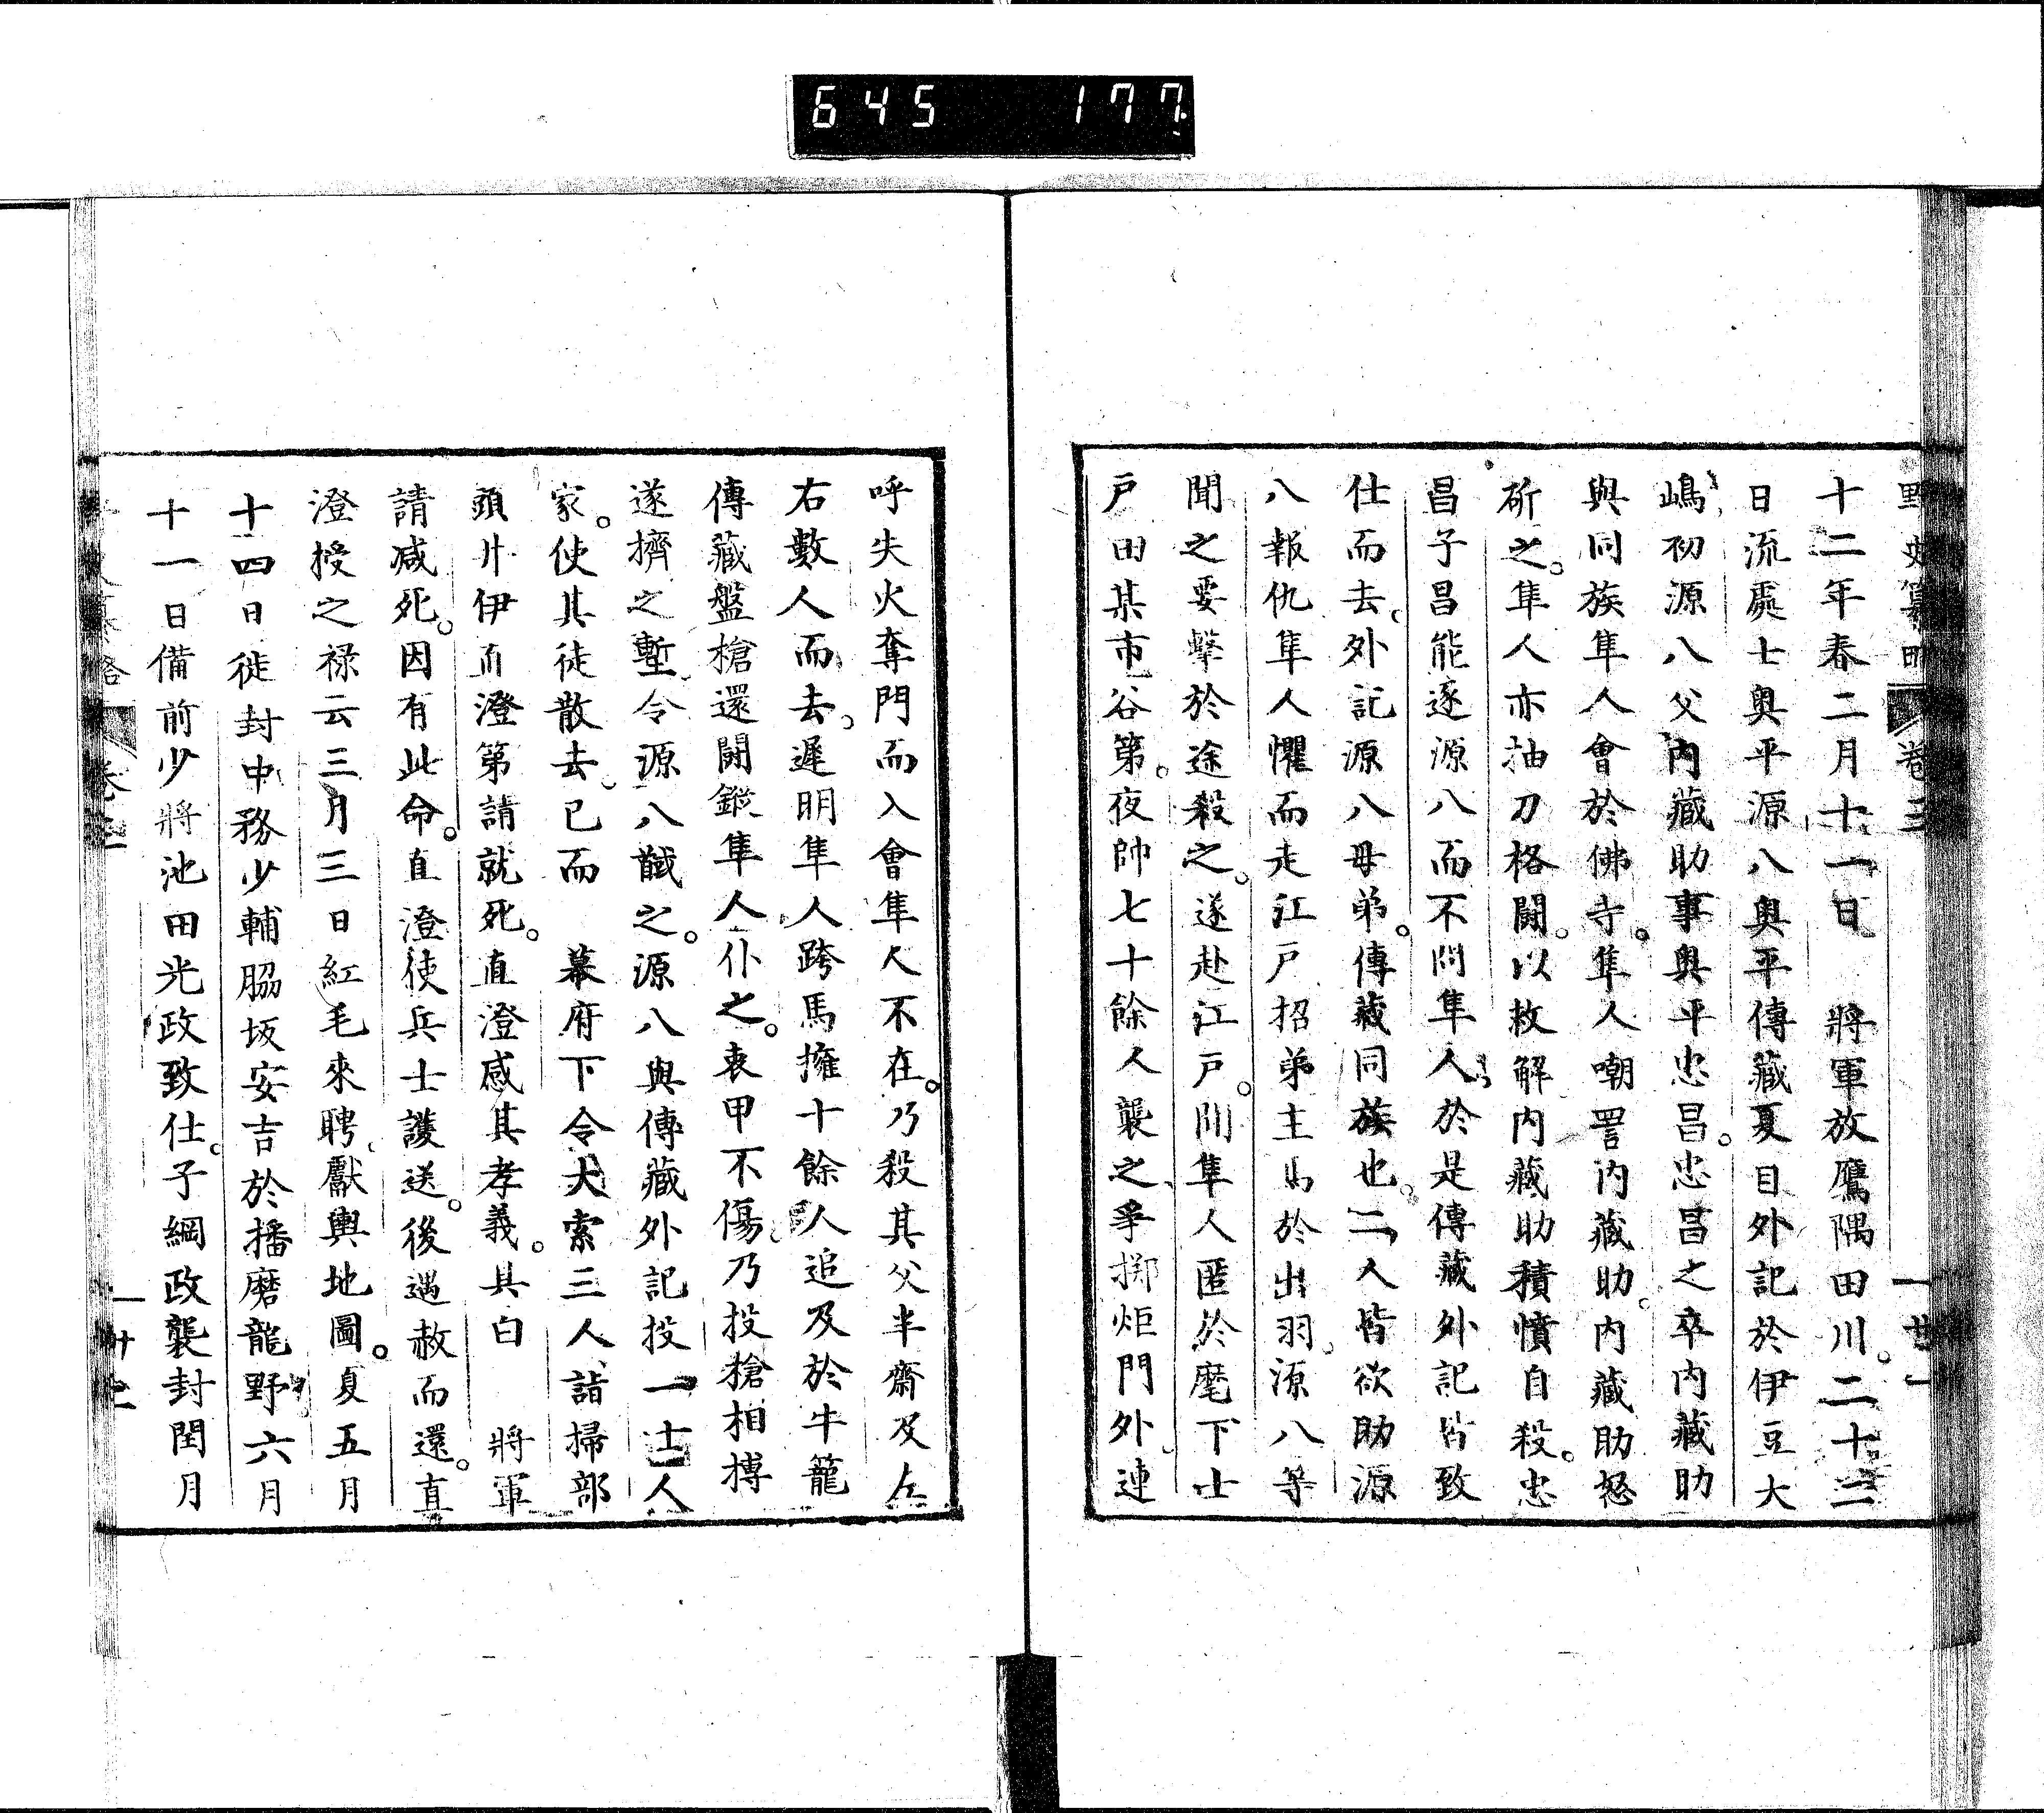 645 177
野史纂略 卷三 廿一
十二年春二月十一日　將軍放鷹隅田川。二十二
日流處士奥平源八奥平傳藏夏目外記於伊豆大
嶋初源八父内藏助事奥平忠昌。忠昌之卒内藏助
與同族隼人會於佛寺。隼人嘲詈内藏助。内藏助怒
斫之。隼人亦抽刀格鬪。以救解内藏助積憤自殺。忠
昌子昌能逐源八而不問隼人。於是傳藏外記皆致
仕而去。外記源八母弟。傳藏同族也。二人皆欲助源
八報仇隼人懼而走江戸招弟主馬於出羽。源八等
聞之要擊於途殺之。遂赴江戸。聞隼人匿於麾下士
戸田某市谷第。夜帥七十餘人襲之爭擲炬門外。連
呼失火奪門而入會隼人不在。乃殺其父半齋及左
右數人而去。遲明隼人跨馬擁十餘人追及於牛籠
傳藏盤槍還鬪鏦隼人仆之。衷甲不傷。乃投槍相搏
遂擠之塹。令源八馘之。源八與傳藏外記投一士人
家。使其徒散去。已而　幕府下令大索三人詣掃部
頭井伊直澄第請就死。直澄感其孝義。具白　將軍
請减死。因有此命。直澄使兵士護送。後遇赦而還。直
澄授之禄云三月三日紅毛來聘。獻輿地圖。夏五月
十四日徙封中務少輔脇坂安吉於播磨龍野六月
十一日備前少將池田光政致仕。子綱政襲封閏月